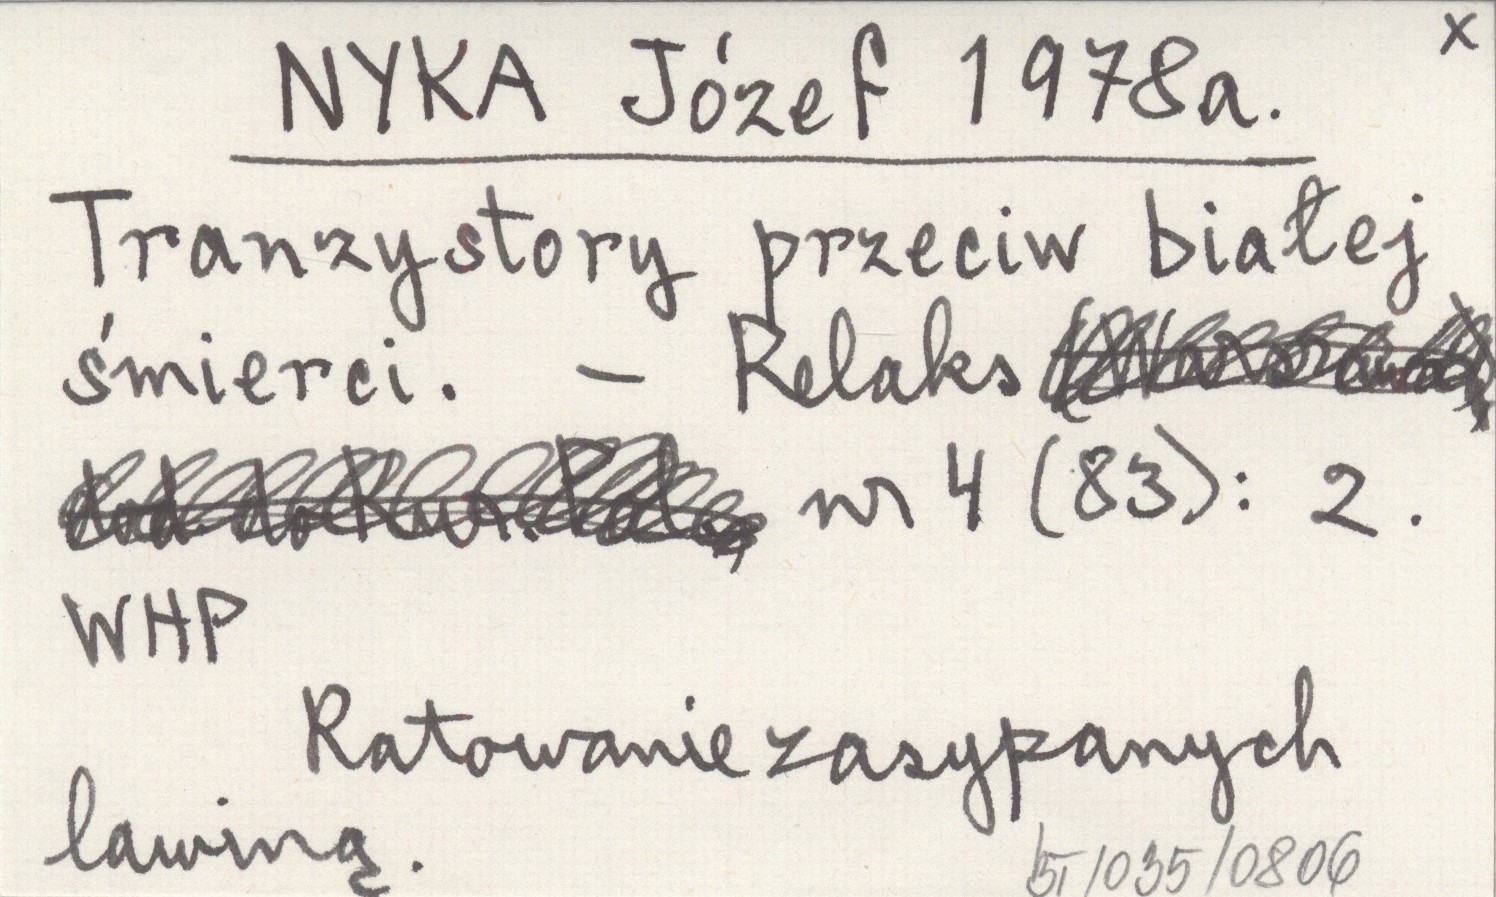 x
NYKA Józef 1978a.
Tranzystory przeciw białej
śmierci. – Relaks
nr 4 (83): 2.
WHP
Ratowanie zasypanych
lawiną.
/035/0806